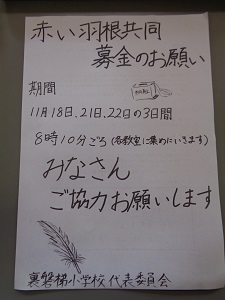 赤い羽根共同
募金のお願い
期間
11月18日、21日、22日の3日間
8時10分ごろ(各教室に集めにいきます)
みなさん
ご協力お願いします
裏磐梯小学校 代表委員会